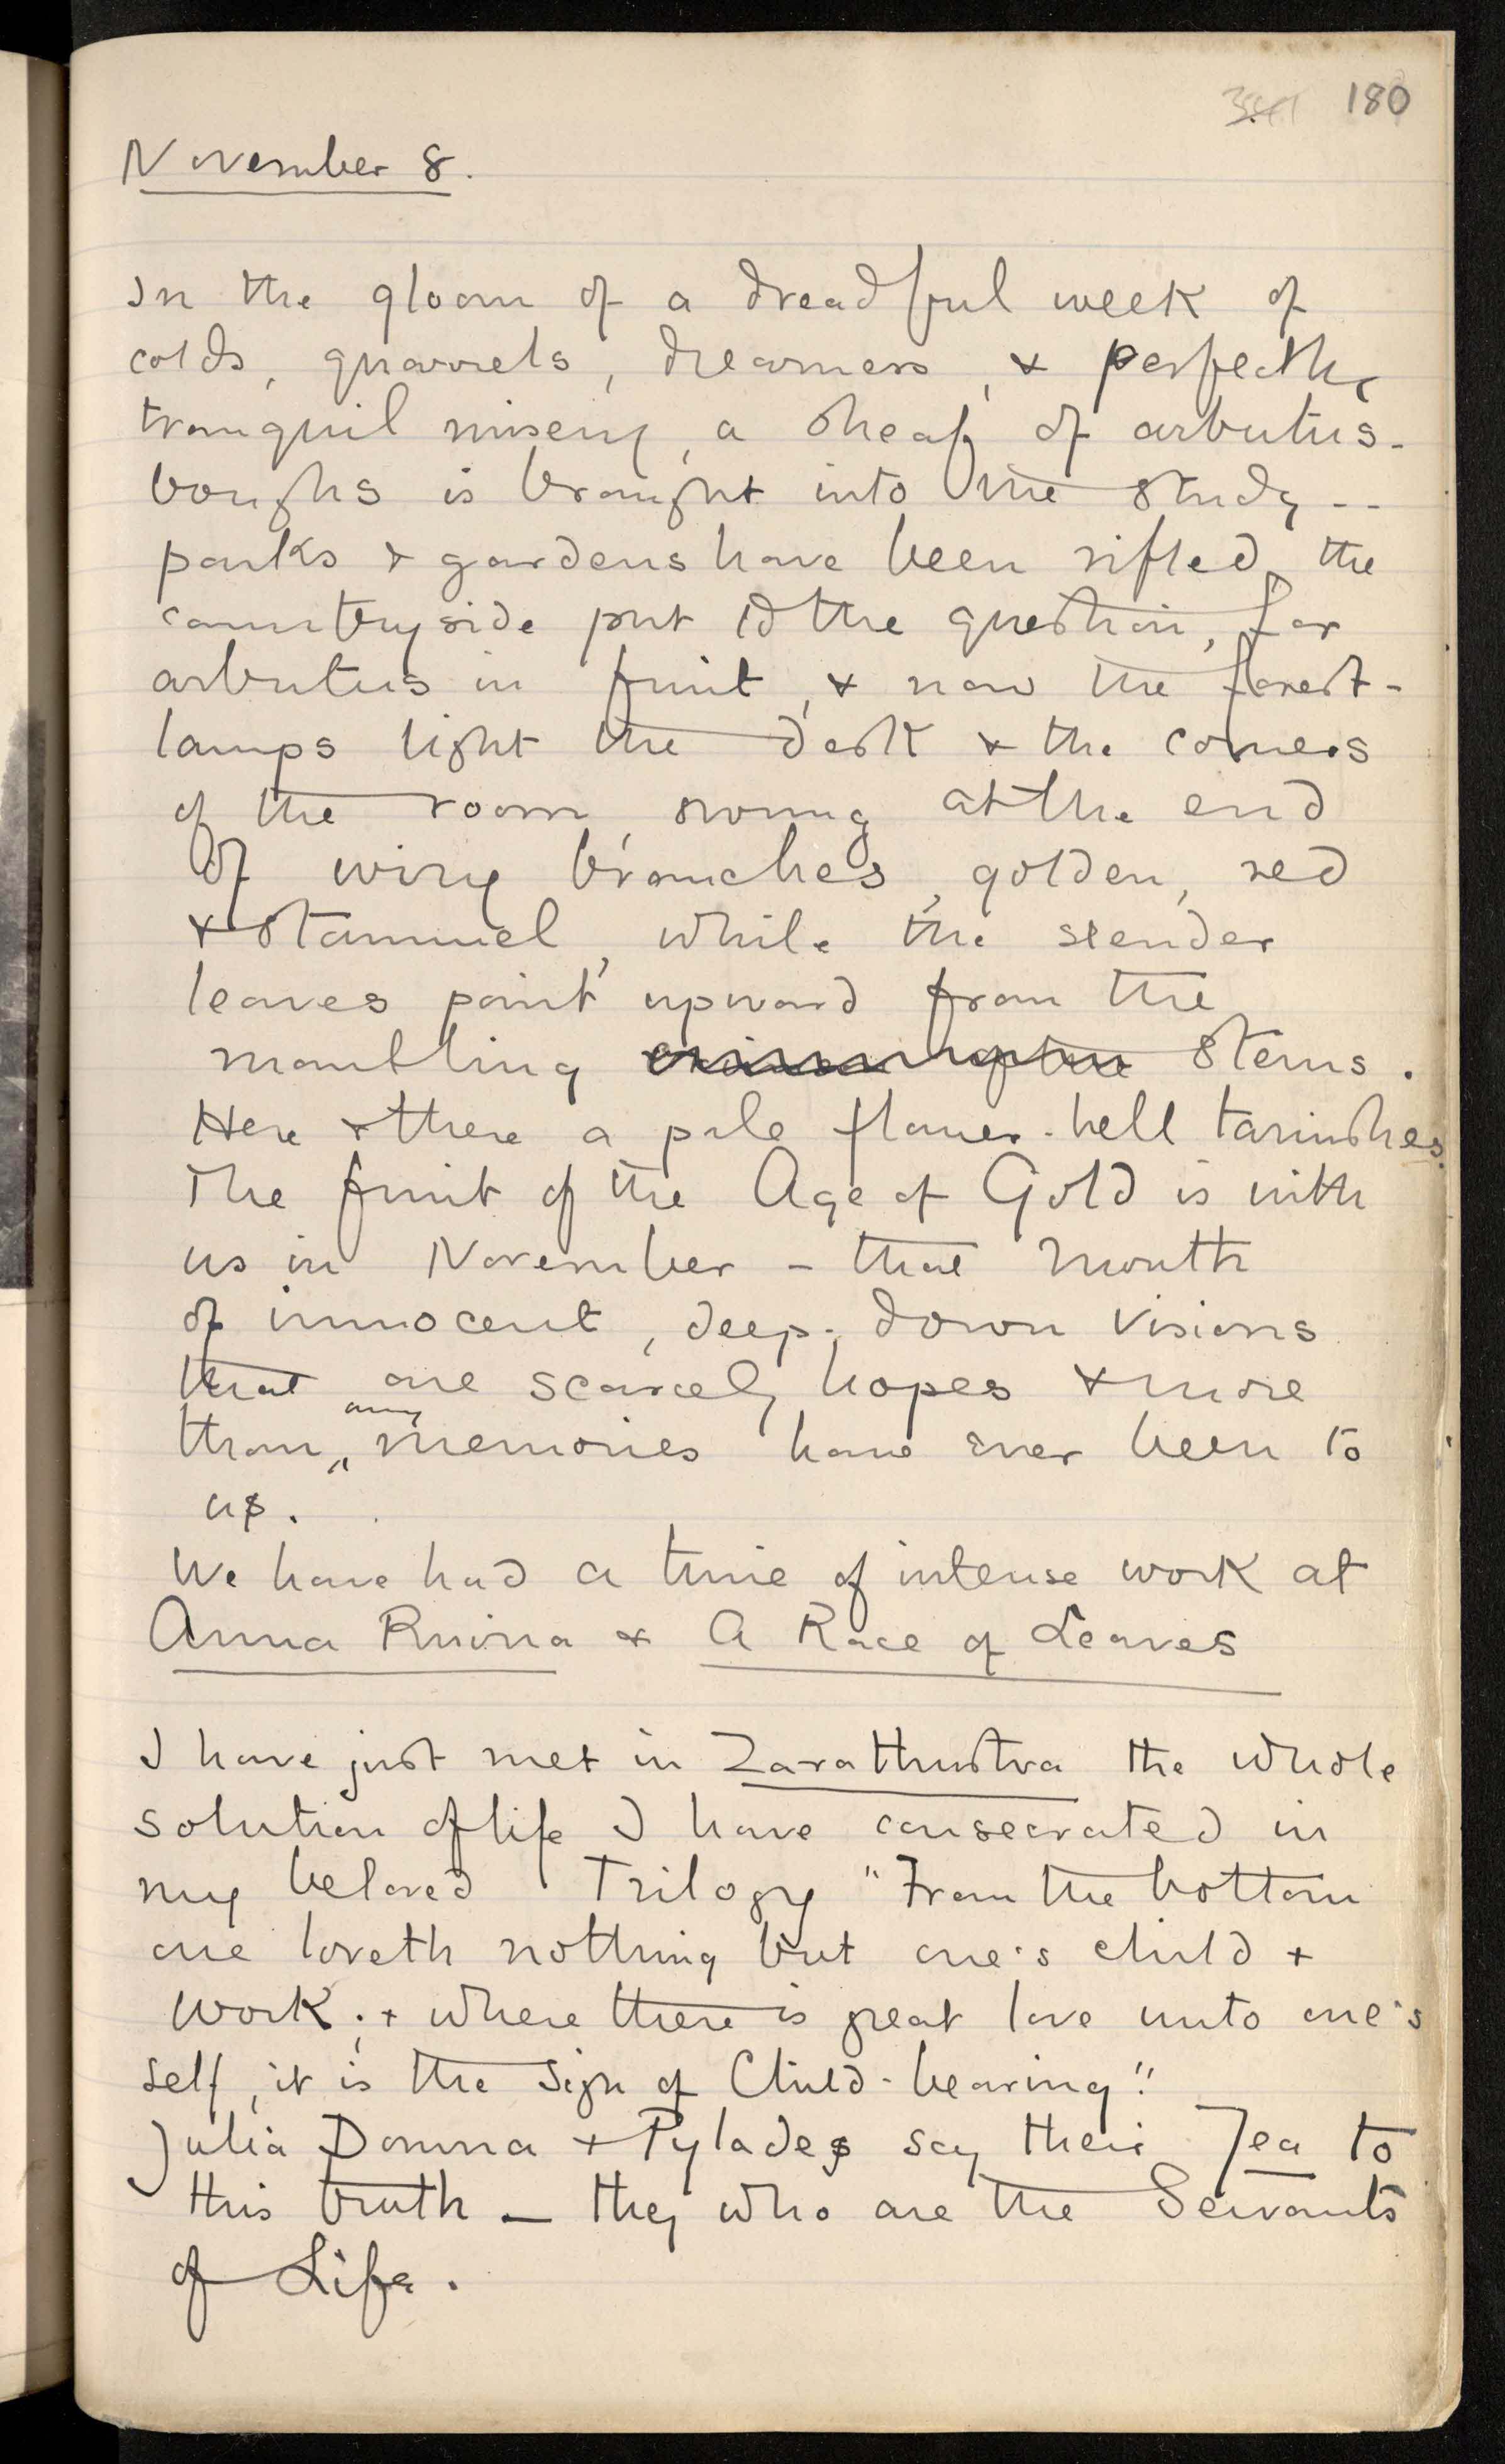 180
November 8.
In the gloom of a dreadful week of
colds, quarrels, dreariness, & perfectly
tranquil misery, a sheaf of arbutus-
boughs is brought into the study --
parks & gardens have been rifled, the
countryside put to the question, for
arbutus in fruit, & now the forest-
lamps light the desk & the corners
of the room, swung at the end
of wiry branches, golden, red
& stammel, while the slender
leaves point upward from the
mantling stems.
Here & there a pale flower-bell tarnishes.
The fruit of the Age of Gold is with
us in November – that month
of innocent, deep-down visions
that are scarcely hopes & more
than any memories have ever been to
us.
We have had a time of intense work at
Anna Ruina & A Race of Leaves
I have just met in Zarathustra the whole
solution of life I have consecrated in
my beloved Trilogy "From the bottom
one loveth nothing but one's child +
work; + where there is great love unto one's
self, it is the sign of Child-bearing."
Julia Domna + Pylades say their Yea to
this truth – they who are the Servants
of Life.